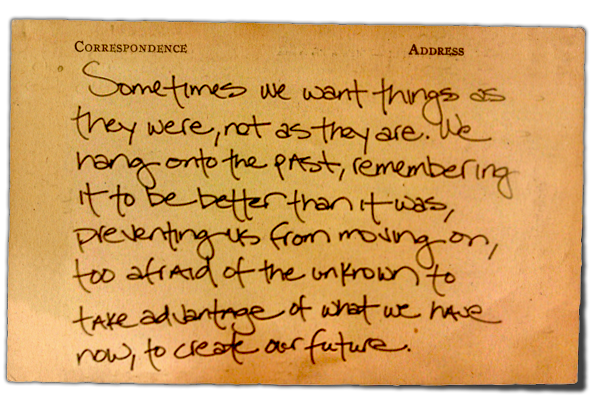 CORRESPONDENCE ADDRESS
Sometimes we want things as
they were, not as they are. We
hang onto the past, remembering
it to be better than it was,
preventing us from moving on,
too afraid of the unknown to
take advantage of what we have
now, to create our future.